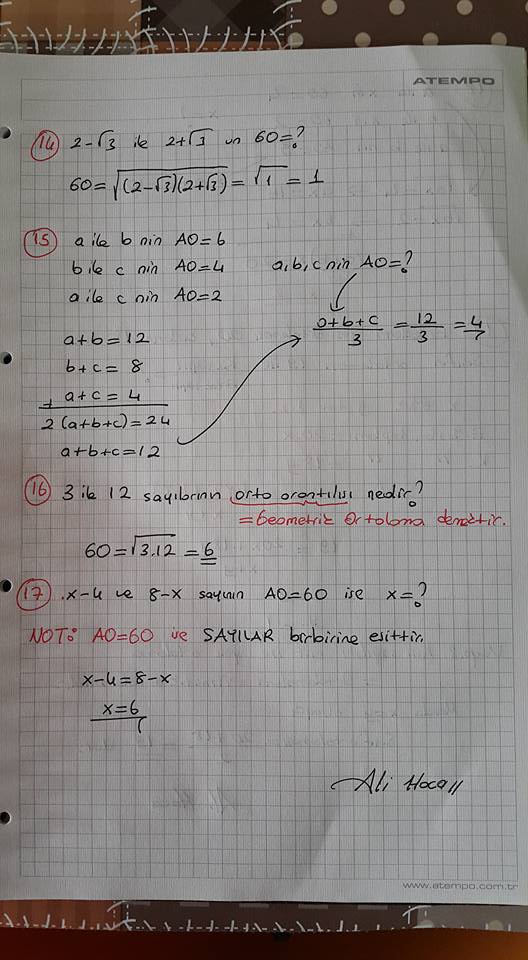 ATEMPO
14 2-√3 ile 2+√3 ün GO=?
GO=√(2-√3)(2+√3) = √1 = 1
15 a ile b nin AO=6
b ile c nin AO=4 a,b,c nin AO=?
a ile c nin AO=2
a+b+c/3 = 12/3 = 4
a+b=12
b+c= 8
+ a+c= 4
2(a+b+c)=24
a+b+c=12
16 3 ile 12 sayılarının orta orantılısı nedir?
=Geometrik Ortalama demektir.
GO=√3.12 = 6
17 .x-4 ve 8-x sayının AO=GO ise x=?
NOT: AO=GO ise SAYILAR birbirine eşittir.
x-4=8-x
x=6
Ali Hoca
www.atempo.com.tr